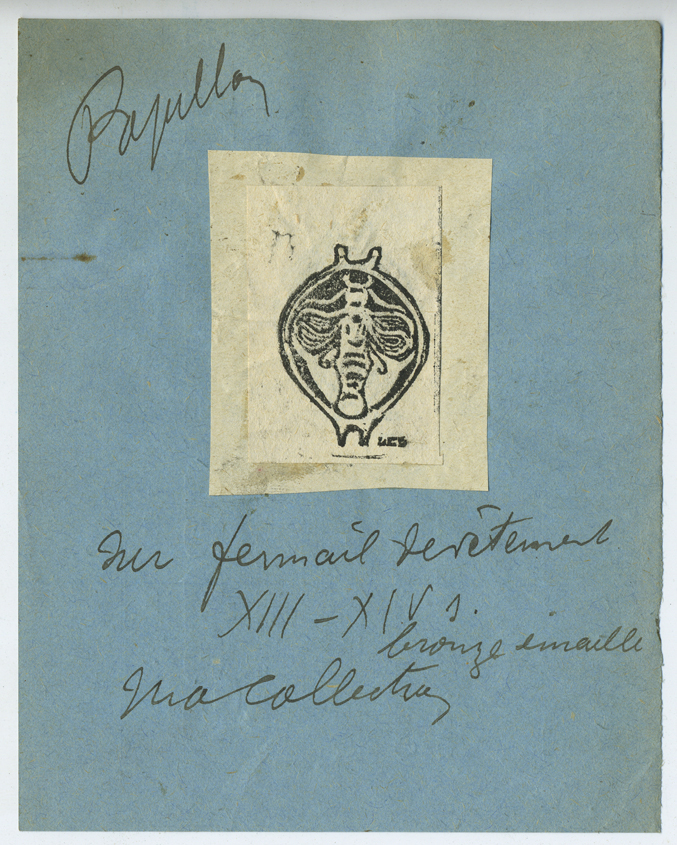 Papillon
LCS
sur fermail de vêtement
XIII – XIV s.
bronze émaillé
Ma Collection